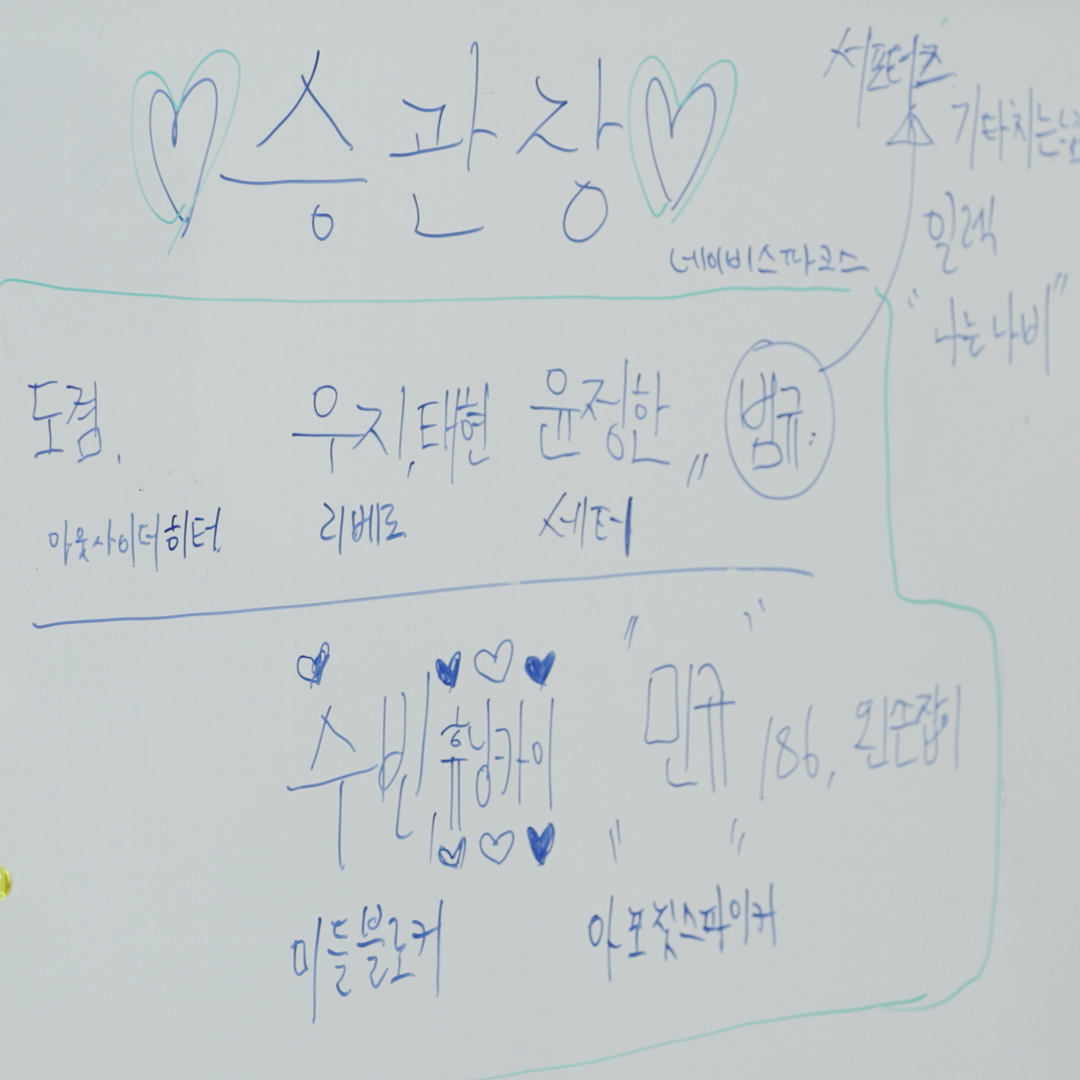 승관장
서포터즈
기타치는
일렉
"나는나비"
네이비스파크스
도겸, 우지,태현 윤정한,, 범규
아웃사이더히터 리베로 세터
수빈,휴닝카이 "민규" 186, 왼손잡이
미들블로커 아포짓스파이커